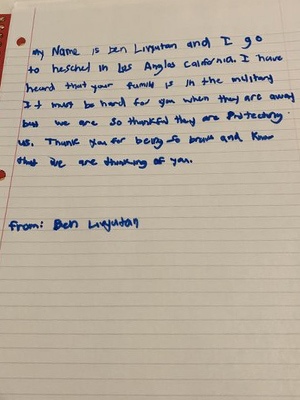 my Name is Ben Livyutan and I go
to heschel in Los Angles California. I have
heard that your family is in the military
It must be hard for you when they are away
but we are so thankful they are protecting
us. Thank you for being so brave and know
that we are thinking of you.
From: Ben Livyutan